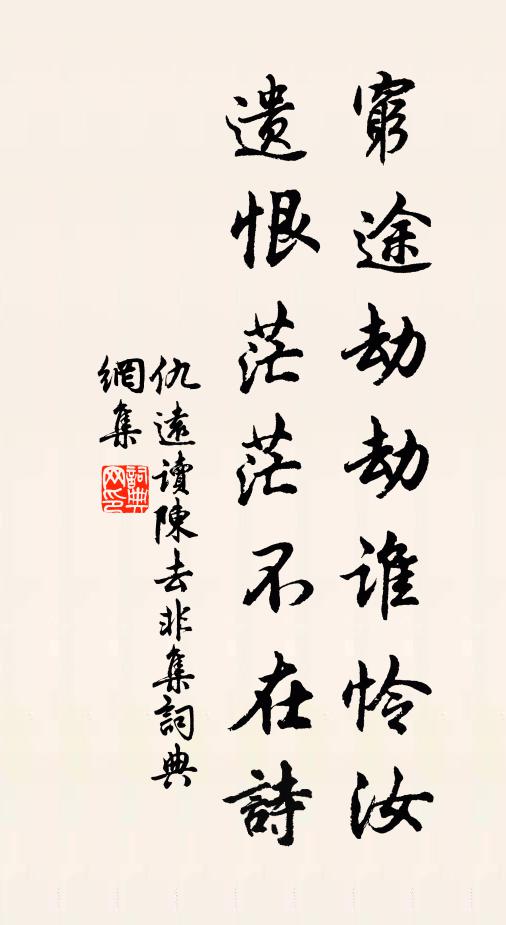 窮途劫劫谁怜汝
遗恨茫茫不在詩
仇遠讀陳去非集詞典
網集
詞典網印